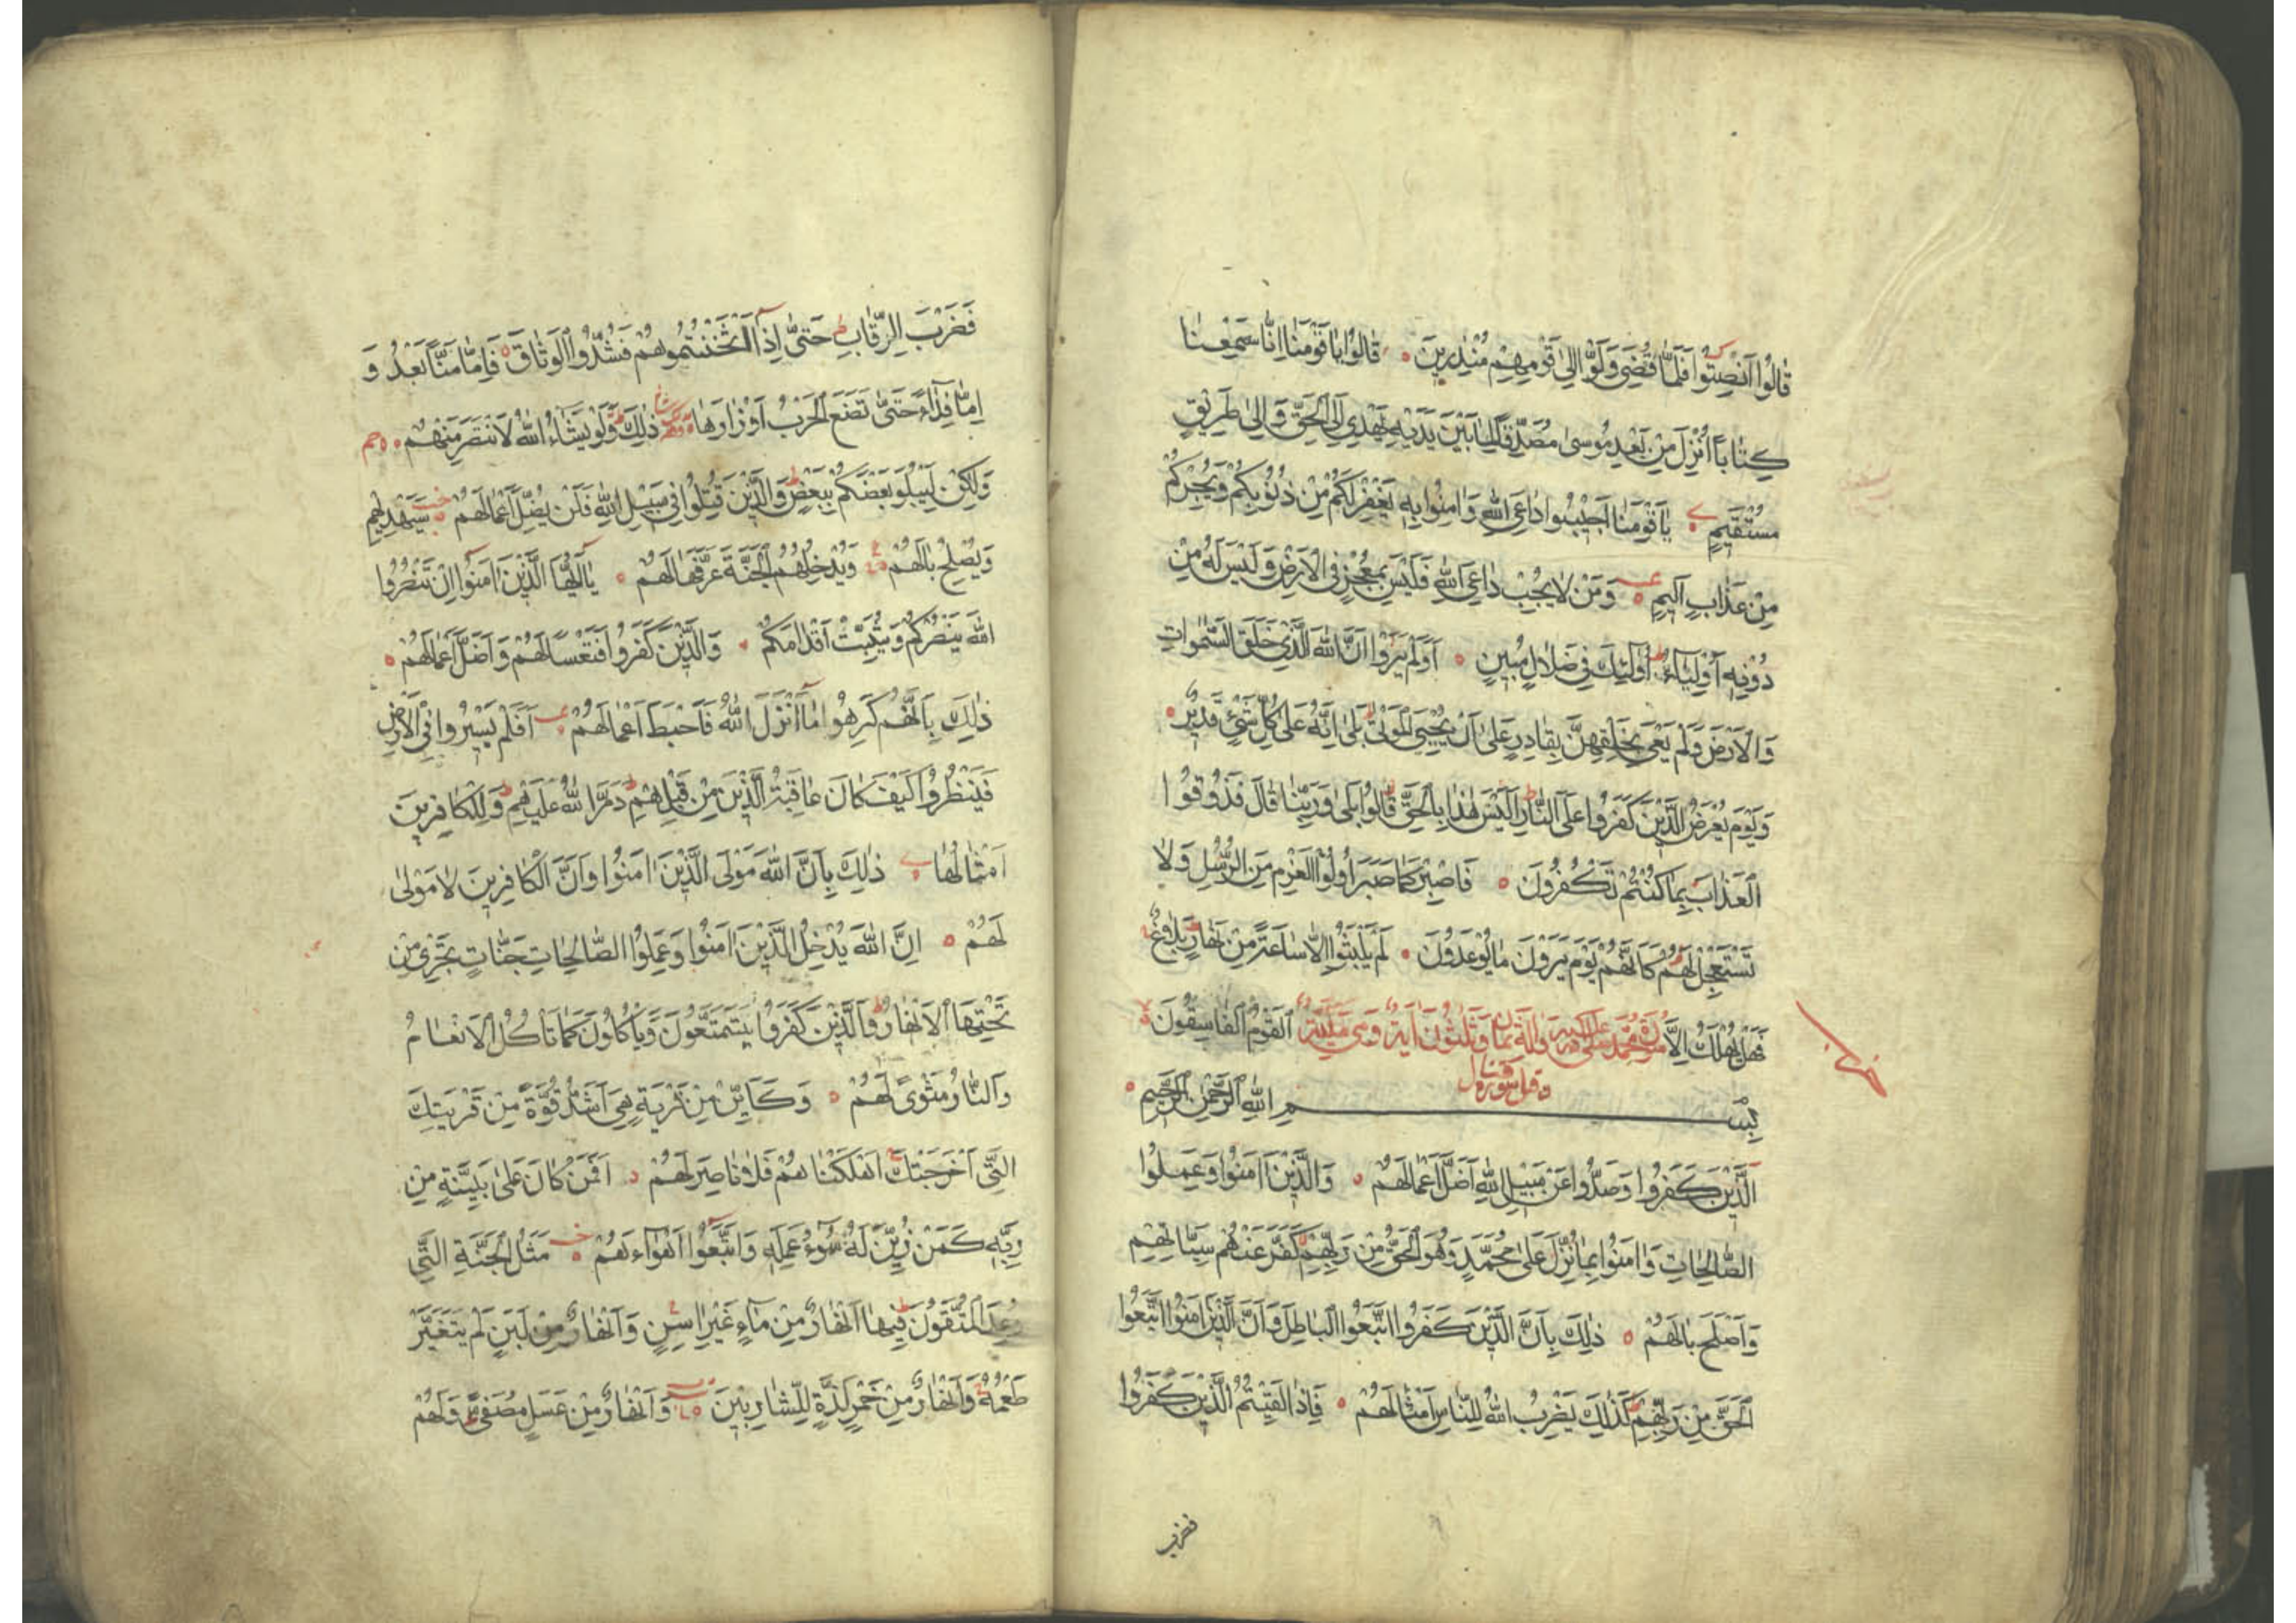 قَالُوا اَنْصِتُوا فَلَمَّا قُضِيَ وَلَّوْا اِلٰى قَوْمِهِمْ مُنْذِرِينَ قَالُوا يَا قَوْمَنَا اِنَّا سَمِعْنَا
كِتَابًا اُنْزِلَ مِنْ بَعْدِ مُوسٰى مُصَدِّقًا لِمَا بَيْنَ يَدَيْهِ يَهْدِي اِلَى الْحَقِّ وَاِلٰى طَرِيقٍ
مُسْتَقِيمٍ يَا قَوْمَنَا اَجِيبُوا دَاعِيَ اللّٰهِ وَاٰمِنُوا بِهِ يَغْفِرْ لَكُمْ مِنْ ذُنُوبِكُمْ وَيُجِرْكُمْ
مِنْ عَذَابٍ اَلِيمٍ وَمَنْ لَا يُجِبْ دَاعِيَ اللّٰهِ فَلَيْسَ بِمُعْجِزٍ فِي الْاَرْضِ وَلَيْسَ لَهُ مِنْ
دُونِهِ اَوْلِيَاءُ اُولٰئِكَ فِي ضَلَالٍ مُبِينٍ اَوَلَمْ يَرَوْا اَنَّ اللّٰهَ الَّذِي خَلَقَ السَّمٰوَاتِ
وَالْاَرْضَ وَلَمْ يَعْيَ بِخَلْقِهِنَّ بِقَادِرٍ عَلٰى اَنْ يُحْيِيَ الْمَوْتٰى بَلٰى اِنَّهُ عَلٰى كُلِّ شَيْءٍ قَدِيرٌ
وَيَوْمَ يُعْرَضُ الَّذِينَ كَفَرُوا عَلَى النَّارِ اَلَيْسَ هٰذَا بِالْحَقِّ قَالُوا بَلٰى وَرَبِّنَا قَالَ فَذُوقُوا
الْعَذَابَ بِمَا كُنْتُمْ تَكْفُرُونَ فَاصْبِرْ كَمَا صَبَرَ اُولُوا الْعَزْمِ مِنَ الرُّسُلِ وَلَا
تَسْتَعْجِلْ لَهُمْ كَاَنَّهُمْ يَوْمَ يَرَوْنَ مَا يُوعَدُونَ لَمْ يَلْبَثُوا اِلَّا سَاعَةً مِنْ نَهَارٍ بَلَاغٌ
فَهَلْ يُهْلَكُ اِلَّا الْقَوْمُ الْفَاسِقُونَ
سورة محمد وثلثون اية
بِسْمِ اللّٰهِ الرَّحْمٰنِ الرَّحِيمِ
اَلَّذِينَ كَفَرُوا وَصَدُّوا عَنْ سَبِيلِ اللّٰهِ اَضَلَّ اَعْمَالَهُمْ وَالَّذِينَ اٰمَنُوا وَعَمِلُوا
الصَّالِحَاتِ وَاٰمَنُوا بِمَا نُزِّلَ عَلٰى مُحَمَّدٍ وَهُوَ الْحَقُّ مِنْ رَبِّهِمْ كَفَّرَ عَنْهُمْ سَيِّاٰتِهِمْ
وَاَصْلَحَ بَالَهُمْ ذٰلِكَ بِاَنَّ الَّذِينَ كَفَرُوا اتَّبَعُوا الْبَاطِلَ وَاَنَّ الَّذِينَ اٰمَنُوا اتَّبَعُوا
الْحَقَّ مِنْ رَبِّهِمْ كَذٰلِكَ يَضْرِبُ اللّٰهُ لِلنَّاسِ اَمْثَالَهُمْ فَاِذَا لَقِيتُمُ الَّذِينَ كَفَرُوا
فضرب
فَضَرْبَ الرِّقَابِ حَتّٰى اِذَا اَثْخَنْتُمُوهُمْ فَشُدُّوا الْوَثَاقَ فَاِمَّا مَنًّا بَعْدُ وَ
اِمَّا فِدَاءً حَتّٰى تَضَعَ الْحَرْبُ اَوْزَارَهَا ذٰلِكَ وَلَوْ يَشَاءُ اللّٰهُ لَانْتَصَرَ مِنْهُمْ
وَلٰكِنْ لِيَبْلُوَ بَعْضَكُمْ بِبَعْضٍ وَالَّذِينَ قُتِلُوا فِي سَبِيلِ اللّٰهِ فَلَنْ يُضِلَّ اَعْمَالَهُمْ سَيَهْدِيهِمْ
وَيُصْلِحُ بَالَهُمْ وَيُدْخِلُهُمُ الْجَنَّةَ عَرَّفَهَا لَهُمْ يَا اَيُّهَا الَّذِينَ اٰمَنُوا اِنْ تَنْصُرُوا
اللّٰهَ يَنْصُرْكُمْ وَيُثَبِّتْ اَقْدَامَكُمْ وَالَّذِينَ كَفَرُوا فَتَعْسًا لَهُمْ وَاَضَلَّ اَعْمَالَهُمْ
ذٰلِكَ بِاَنَّهُمْ كَرِهُوا مَا اَنْزَلَ اللّٰهُ فَاَحْبَطَ اَعْمَالَهُمْ اَفَلَمْ يَسِيرُوا فِي الْاَرْضِ
فَيَنْظُرُوا كَيْفَ كَانَ عَاقِبَةُ الَّذِينَ مِنْ قَبْلِهِمْ دَمَّرَ اللّٰهُ عَلَيْهِمْ وَلِلْكَافِرِينَ
اَمْثَالُهَا ذٰلِكَ بِاَنَّ اللّٰهَ مَوْلَى الَّذِينَ اٰمَنُوا وَاَنَّ الْكَافِرِينَ لَا مَوْلٰى
لَهُمْ اِنَّ اللّٰهَ يُدْخِلُ الَّذِينَ اٰمَنُوا وَعَمِلُوا الصَّالِحَاتِ جَنَّاتٍ تَجْرِي مِنْ
تَحْتِهَا الْاَنْهَارُ وَالَّذِينَ كَفَرُوا يَتَمَتَّعُونَ وَيَاْكُلُونَ كَمَا تَاْكُلُ الْاَنْعَامُ
وَالنَّارُ مَثْوًى لَهُمْ وَكَاَيِّنْ مِنْ قَرْيَةٍ هِيَ اَشَدُّ قُوَّةً مِنْ قَرْيَتِكَ
الَّتِي اَخْرَجَتْكَ اَهْلَكْنَاهُمْ فَلَا نَاصِرَ لَهُمْ اَفَمَنْ كَانَ عَلٰى بَيِّنَةٍ مِنْ
رَبِّهِ كَمَنْ زُيِّنَ لَهُ سُوءُ عَمَلِهِ وَاتَّبَعُوا اَهْوَاءَهُمْ مَثَلُ الْجَنَّةِ الَّتِي
وُعِدَ الْمُتَّقُونَ فِيهَا اَنْهَارٌ مِنْ مَاءٍ غَيْرِ اٰسِنٍ وَاَنْهَارٌ مِنْ لَبَنٍ لَمْ يَتَغَيَّرْ
طَعْمُهُ وَاَنْهَارٌ مِنْ خَمْرٍ لَذَّةٍ لِلشَّارِبِينَ وَاَنْهَارٌ مِنْ عَسَلٍ مُصَفًّى وَلَهُمْ